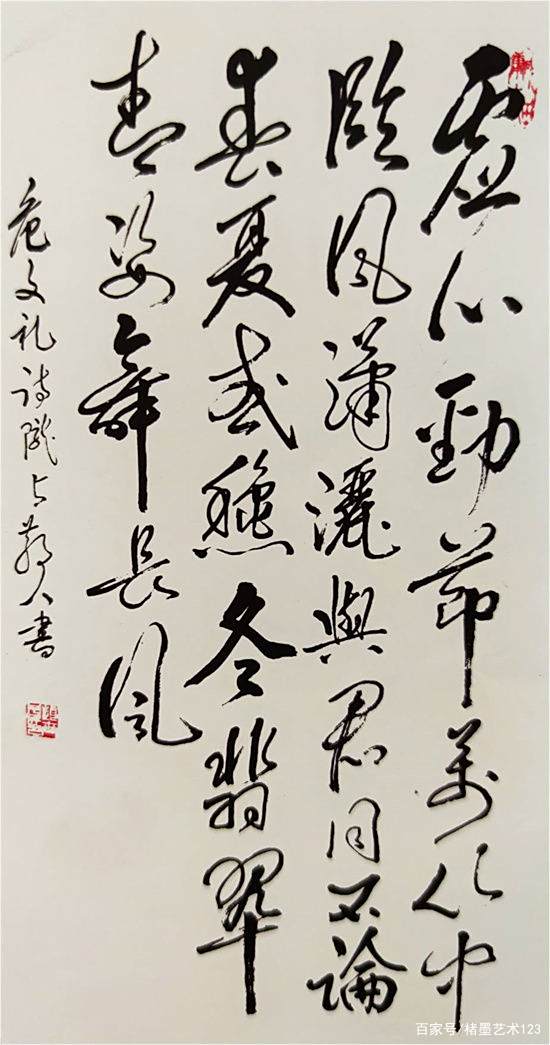 虚心勁節萬仞中
臨風瀟灑與君同不論
春夏或穐冬翡翠
青姿舞長風
危文礼诗隴上散人書
百家号/楮墨艺术123